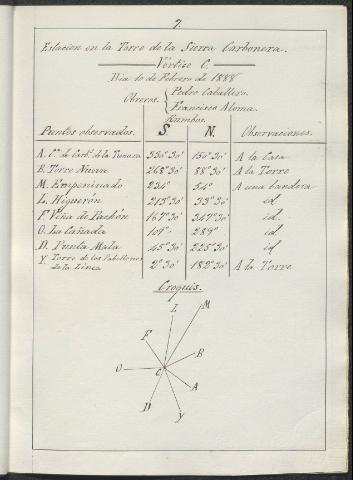 7.
Estacion en la Torre de la Sierra Carbonera.
Vértice C.
Dia 10 de Febrero de 1888
Obreros. Pedro Caballero.
Francisco Aloma.
Rumbos.
Puntos observados. S. N. Observaciones.
A. C.ª de Carb.s de la 330°30' 150°30' A la Casa
B. Torre Nueva 268°30' 88°30' A la Torre
M. Emperinado 234° 54° A una bandera
L. Higuerón 213°30' 33°30' id
F. Viña de Pachón 167°30' 347°30' id.
O. La Cañada 109° 289° id.
D. Punta Mala 45°30' 225°30' id
Y Torre de los Pabellones 2°30' 182°30' A la Torre
de la Línea
Croquis.
L M
F
B
O C
A
D
Y